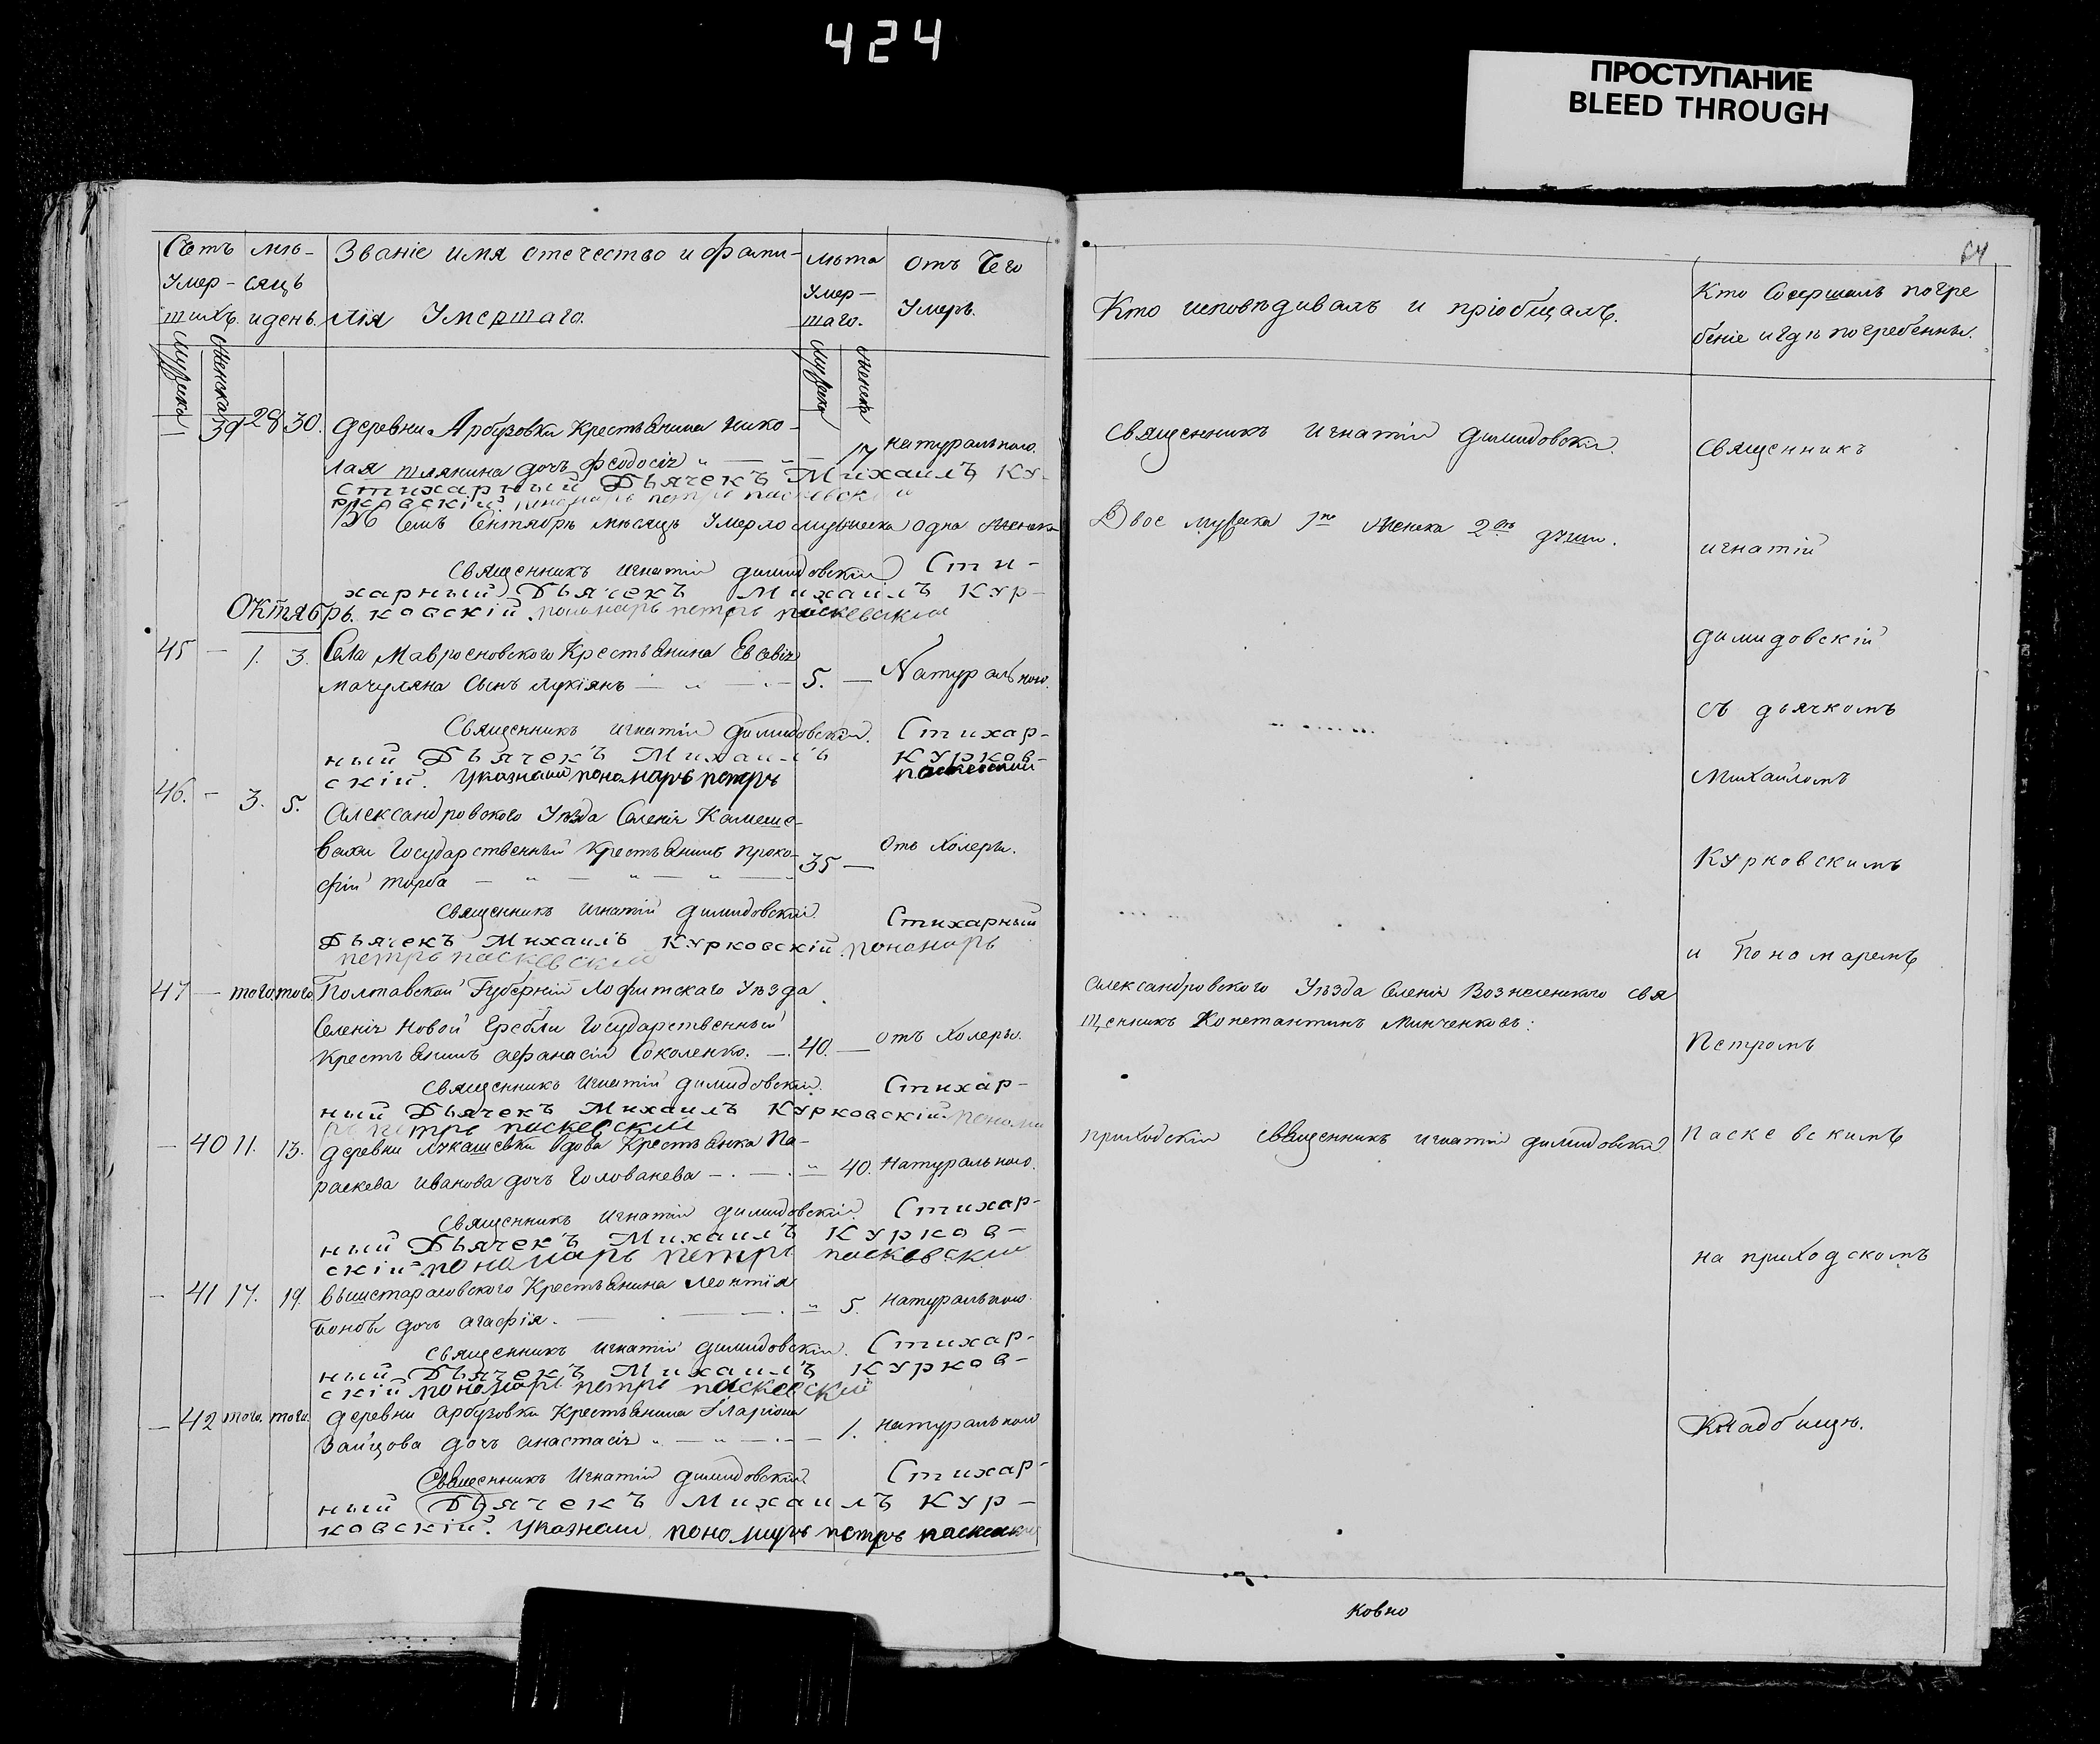 424
ПРОСТУПАНИЕ
BLEED THROUGH
Счетъ умершихъ
мѣсяцъ и день
Званіе имя отечество и фамилія Умершаго.
лѣта Умершаго.
Отъ Чего Умеръ.
Мужеска
Женска
Мужеска
Женска
39 28 30. деревни Арбузовки Крестьянина Нико-
лая дочь Феодосія 17 натурального.
Стихарный Дьячекъ Михаилъ Ку-
рковскій. пономарь петръ паскевскій
Въ Семъ Сентябрѣ мѣсяцѣ Умерло мужеска одна женска
Священникъ Игнатій димидовскій Сти-
харный Дьячекъ Михаилъ Кур-
Октябрь. ковскій. пономарь петръ паскевскій
45 — 1. 3. Села Крестьянина Евсевія
мачуляна Сынъ Лукіянъ 5. — Натурального.
Священникъ Игнатій димидовскій. Стихар-
ный Дьячекъ Михаилъ Курков-
скій. Указный пономарь петръ паскевский
46. — 3. 5. Александровского Уѣзда Селенія Камыше-
вахи Государственный Крестьянинъ Проко-
фій торба 35 — Отъ Холеры.
Священникъ Игнатій димидовскій. Стихарный
Дьячекъ Михаилъ Курковскій. пономарь
петръ паскевский
47 — того того Полтавской Губерніи Уѣзда
Селенія Новой Гребли Государственный
Крестьянинъ Афанасій Соколенко. 40. — отъ Холеры.
Священникъ Игнатій димидовскій. Стихар-
ный Дьячекъ Михаилъ Курковскій. понома
рь петръ паскевский
— 40 11. 13. деревни Лукашевки вдова Крестьянка Па-
раскева Иванова дочь Голованева 40. Натурального.
Священникъ Игнатій димидовскій Стихар-
ный Дьячекъ Михаилъ Курков-
скій пономарь петръ паскевский
— 41 17. 19. Крестьянина Леонтія
дочь Агафія. 5. Натурального.
Священникъ Игнатій димидовскій. Стихар-
ный Дьячекъ Михаилъ Курков-
скій пономарь петръ паскевский
— 42 того. того. деревни Арбузовки Крестьянина Иларіона
Зайцова дочь Анастасія 1. натурального
Священникъ Игнатій димидовскій Стихар-
ный Дьячекъ Михаилъ Кур-
ковскій. Указный пономарь петръ
64
Кто исповѣдивалъ и пріобщалъ.
Кто Совершалъ погре
беніе и гдѣ погребенны.
Священникъ Игнатій димидовскій.
Двое мужеска женска 2 души.
Александровского Уѣзда Селенія Вознесенского свя
щенникъ Константинъ Минченковъ:
приходскій Священникъ Игнатій димидовскій.
Священникъ
игнатій
димидовскій
съ дьячкомъ
Михаиломъ
Курковскимъ
и Пономаремъ
Петромъ
Паскевскимъ
на приходскомъ
Кладбищѣ.
ковно